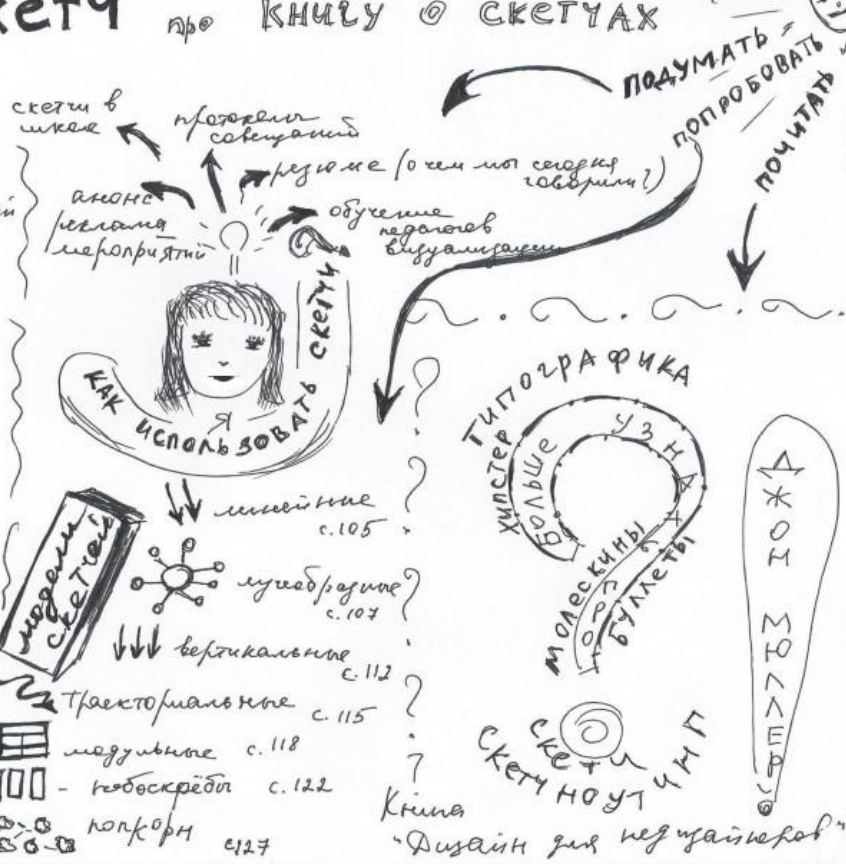 кетч про КНИГУ О СКЕТЧАХ
ПОДУМАТЬ
ПОПРОБОВАТЬ
ПОЧИТАТЬ
скетчи в
школе
протоколы
совещаний
резюме (о чем мы сегодня
говорили?)
анонс
реклама
мероприятий
обучение
педагогов
визуализации
Я
КАК ИСПОЛЬЗОВАТЬ СКЕТЧИ
модели
скетчей
линейные
с.105
лучеобразные
с.107
вертикальные
с.112
Траекториальные
с.115
модульные с.118
- небоскрёбы с.122
попкорн
с127
ТИПОГРАФИКА
ХИПСТЕР
БОЛЬШЕ УЗНАТЬ
ПРО
МОЛЕСКИНЫ
БУЛЛЕТЫ
СКЕТЧ
СКЕТЧНОУТИНГ
ДЖОН МЮЛЛЕР
Книга
"Дизайн для недизайнеров"